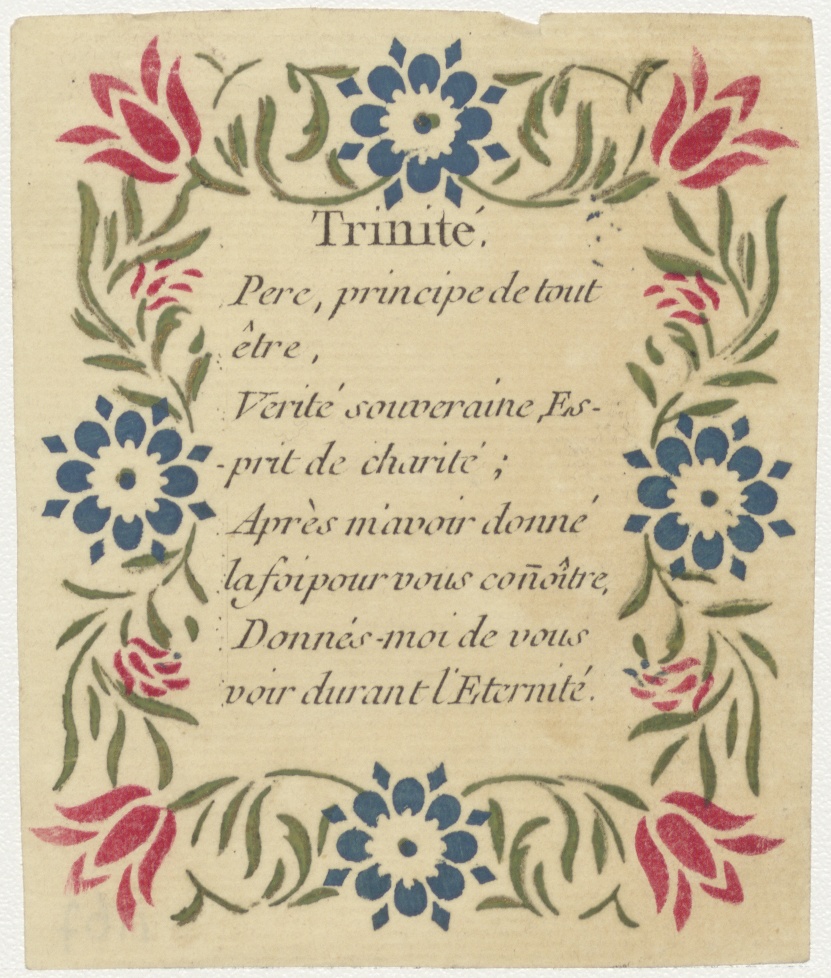 Trinité.
Pere, principe de tout
être,
Verité souveraine, Es-
-prit de charité ;
Après m'avoir donné
la foi pour vous con̄oître,
Donnés-moi de vous
voir durant l'Eternité.